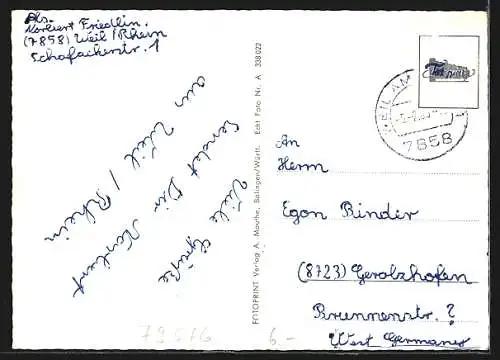 Abs.
Norbert Friedlin.
(7858) Weil/Rhein
Schofackerstr. 1
Viele Grüße
sendet Dir Norbert
aus Weil / Rhein
FOTOPRINT Verlag A. Mauthe, Balingen/Württ. Echt Foto Nr. A 338 022
WEIL AM
7858
An
Herrn
Egon Binder
(8723) Gerolzhofen
Brunnenstr. ?
West Germany
79576
6.-